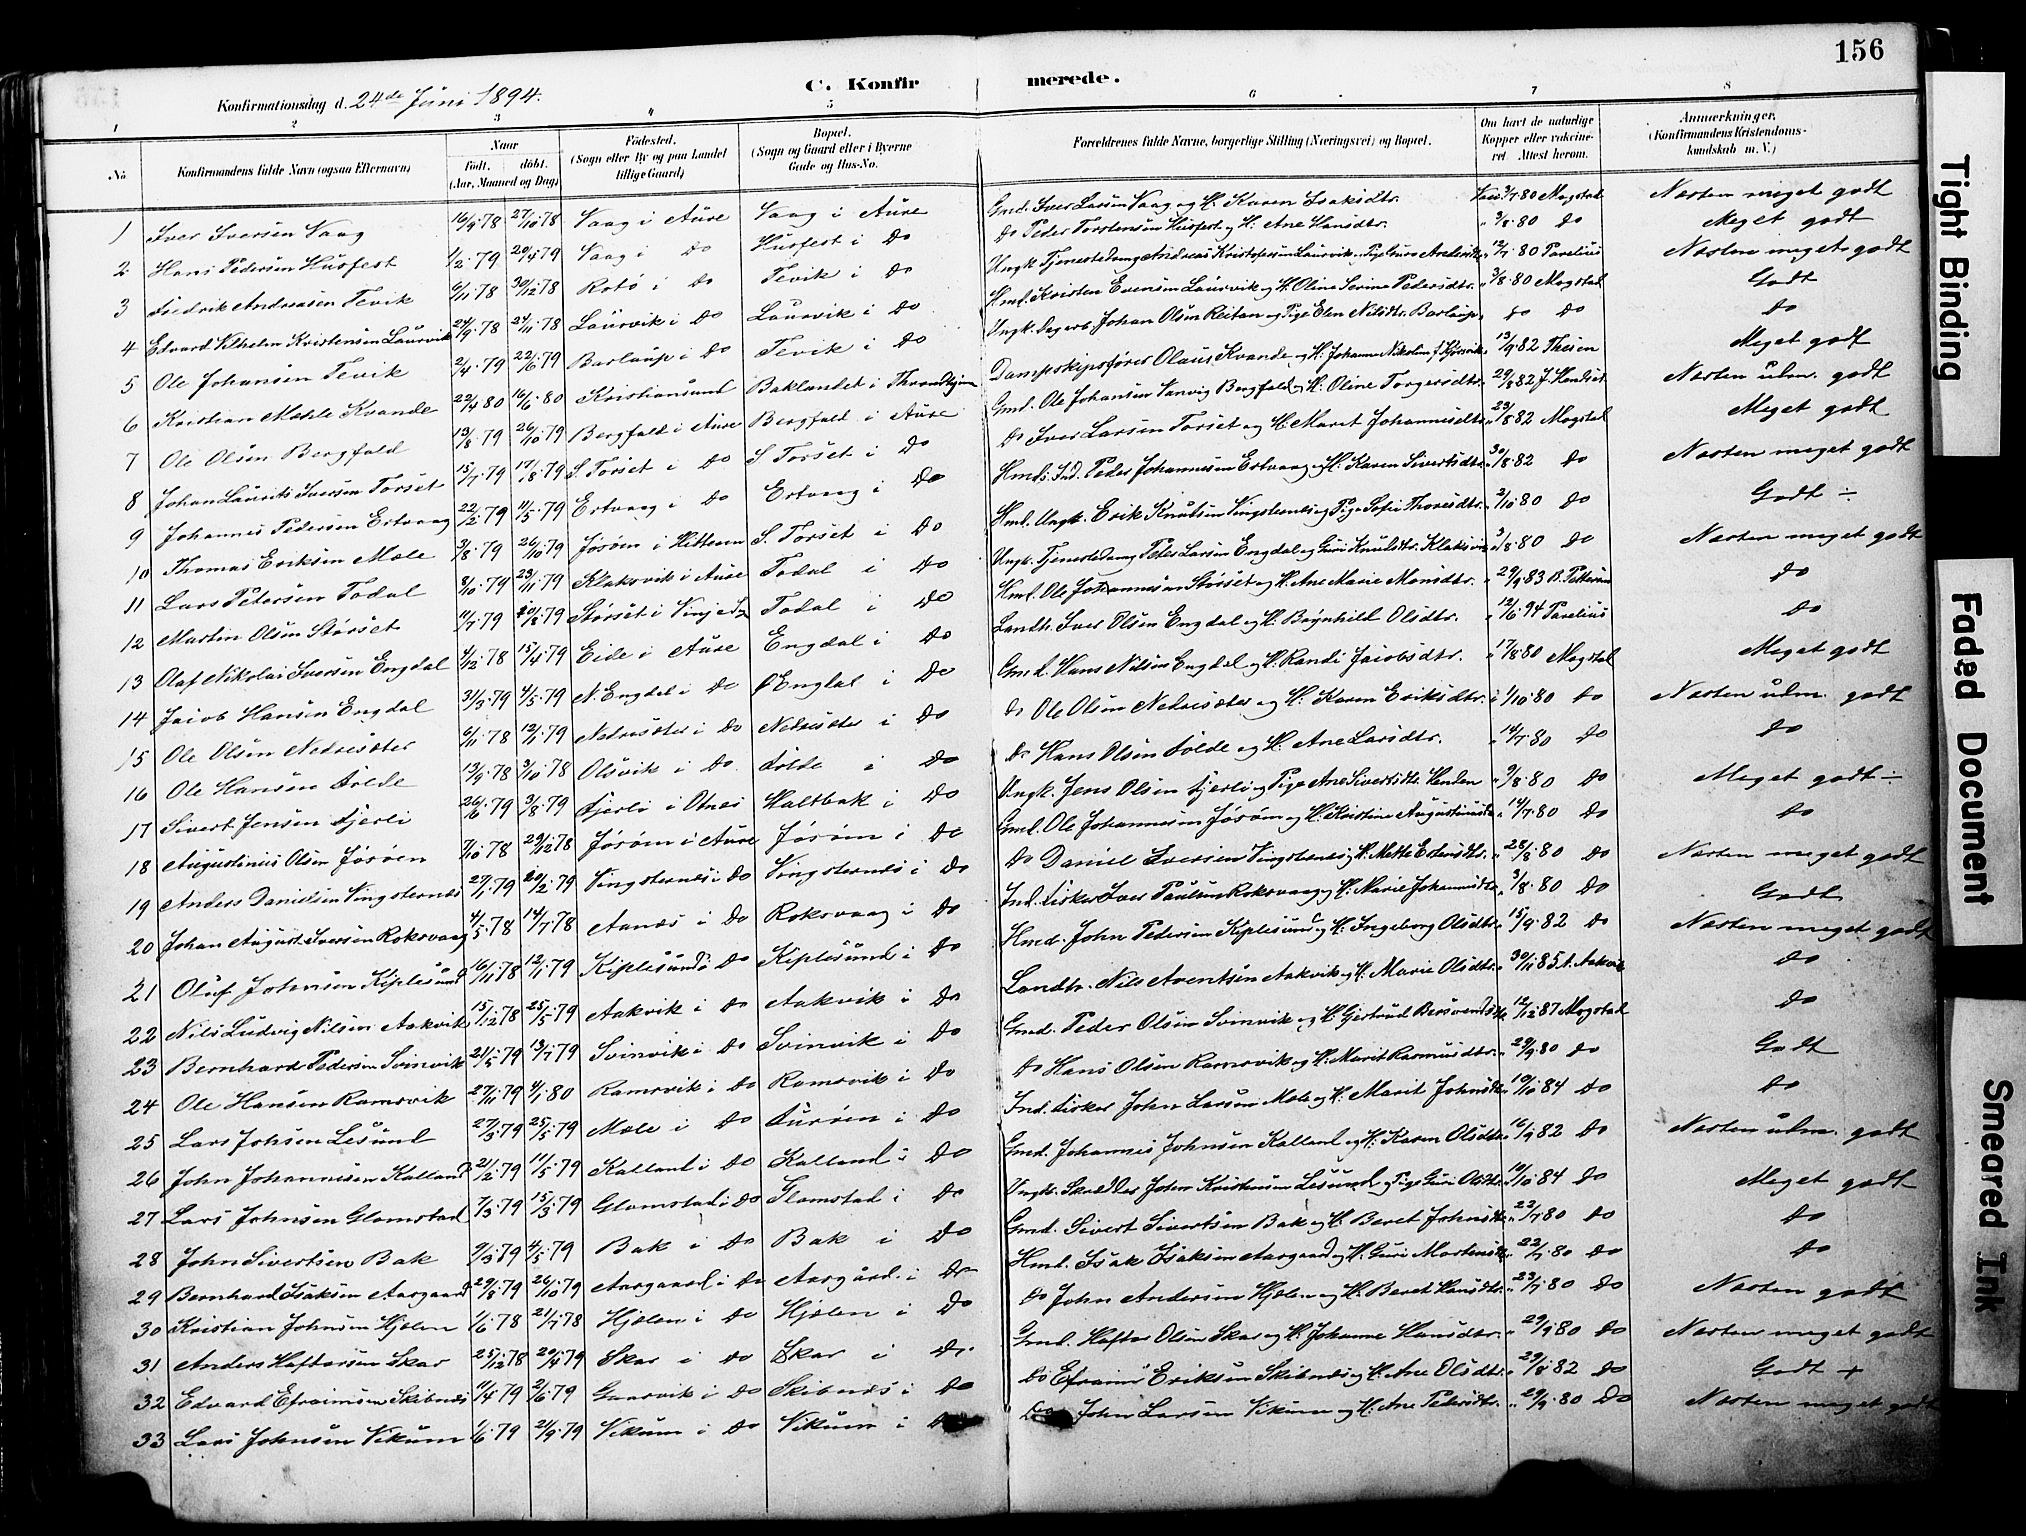 156
C. Konfirmerede.
Konfirmationsdag d. 24de Juni 1894.
1 2 3 4 5 6 7 8
No Konfirmandens fulde Navn (ogsaa Efternavn) Naar Født. døbt. (Aar, Maaned og Dag) Fødested. (Sogn eller By og paa Landet tillige Gaard) Bopæl. (Sogn og Gaard eller i Byerne Gade og Hus-No. Forældrenes fulde Navne, borgerlige Stilling (Næringsvei) og Bopæl. Om havt de naturlige Kopper eller vakcineret. Attest herom. Anmærkninger. (Konfirmandens Kristendomskundskab m. V.)
1 Iver Iversen Vaag 16/9 78 27/10 78 Vaag i Aure Vaag i Aure Gmd. Iver Larsen Vaag og H. Karen Isaksdtr. Vac. 3/7 80 Mogstad Næsten meget godt
2 Hans Pedersen Husfest 1/2 79 20/4 79 Vaag i Do Husfest i Do Do Peder Torstensen Husfest og H. Ane Hansdtr. " 3/8 80 Do Meget godt
3 Fredrik Andreasen Tevik 6/11 78 30/12 78 Rotø i Do Tevik i Do Ungk. Tjenestedreng Andreas Kristofersen Laurvik 80 Parelius Næsten meget godt
4 Edvard Vilhelm Kristensen Laurvik 24/9 78 24/11 78 Laurvik i Do Laurvik i Do Hml. Kristen Evensen Laurvik og H. Oline Serine Pedersdtr. " 3/8 80 Mogstad Godt
5 Ole Johansen Tevik 2/4 79 22/6 79 Barlaup i Do Tevik i Do Ungk. Dagarb. Johan Olsen Reitan og Pige Elen Nilsdtr. Barlaup Do Do Do
6 Kristian Mæhle Kvande 22/4 80 16/6 80 Kristiansund Baklandet i Throndhjem Dampskipsfører Olaus Kvande og H. Johanne Nikoline 13/9 82 Thesen Meget godt
7 Ole Olsen Bergfald 13/8 79 26/10 79 Bergfald i Aure Bergfald i Aure Gmd. Ole Johansen Vanvig Bergfald og H. Oline Torgersdtr. 29/8 82 Næsten udm. godt
8 Johan Laurits Iversen Torset 15/7 79 17/8 79 S. Torset i Do S. Torset i Do Do Iver Larsen Torset og H. Maret Johannesdtr. 23/8 82 Mogstad Meget godt
9 Johannes Pedersen Ertvaag 22/2 79 11/5 79 Ertvaag i Do Ertvaag i Do Hmd. Ind. Peder Johannesen Ertvaag og H. Karen Sivertsdtr. 30/8 82 Do Næsten meget godt
10 Thomas Eriksen Mæle 3/8 79 26/10 79 Jøsøen i Hitteren S. Torset i Do Hml. Ungk. Erik Knutsen Vingsternes og Pige Sofie Thoresdtr. 2/10 80 Do Godt ÷
11 Lars Petersen Todal 8/10 79 23/11 79 Klaksvik i Aure Todal i Do Ungk. Tjenestedreng Peter Larsen Engdal og Guri Knutsdtr. Klaksvik 3/8 80 Do Næsten meget godt
12 Martin Olsen Størset 11/7 79 20/8 79 Størset i Vinje Todal i Do Hml. Ole Johannesen Størset og H. Ane Marie Monsdtr. " 29/9 83 B. Pettersen Do
13 Olaf Nikolai Iversen Engdal 4/12 78 15/4 79 Eide i Aure Engdal i Do Landh. Iver Olsen Engdal og H. Brynhild Olsdtr. " 12/6 94 Parelius Do
14 Jacob Hansen Engdal 31/3 79 4/5 79 N. Engdal i Do Engdal i Do Gmd. Hans Nilsen Engdal og H. Randi Jacobsdtr. " 17/8 80 Mogstad Meget godt
15 Ole Olsen Nedresæter 6/11 78 12/1 79 Nedresæter i Do Nedresæter i Do Do Ole Olsen Nedresæter og H. Karen Eriksdtr. 1/10 80 Do Næsten udm. godt
16 Ole Hansen Folde 13/9 78 3/10 78 Olsvik i Do Folde i Do Do Hans Olsen Folde og H. Ane Larsdtr. " 14/7 80 Do Do
17 Sivert Jensen Fjerli 26/6 79 3/8 79 Fjerli i Otnes Haltbak i Do Ungk. Jens Olsen Fjerli og Pige Ane Sivertsdtr. Henden " 9/8 80 Do Meget godt ÷
18 Augustinus Olsen Jøsøen 7/10 78 29/12 78 Jøsøen i Aure Jøsøen i Do Gml. Ole Johannesen Jøsøen og H. Kristine Augustinusdtr. 14/7 80 Do Do
19 Anders Danielsen Vingsternes 27/1 79 20/2 79 Vingsternes i Do Vingsternes i Do Do Daniel Iversen Vingsternes og H. Mette Estensdtr. " 28/8 80 Do Næsten meget godt
20 Johan August Iversen Roksvaag 4/5 78 14/7 78 Aanes i Do Roksvaag i Do Ind. Fisker Iver Paulsen Roksvaag og H. Marie Johannesdtr. 3/8 80 Do Godt
21 Oluf Johnsen Kiplesund 16/11 78 12/1 79 Kiplesund i Do Kiplesund i Do Hmd. John Pedersen Kiplesund og H. Ingeborg Olsdtr. " 15/9 82 Do Næsten meget godt
22 Nils Ludvig Nilsen Aakvik 15/12 78 25/5 79 Aakvik i Do Aakvik i Do Landh. Nils Arentsen Aakvik og H. Marie Olsdtr. 30/11 85 A. Aakvik Do
23 Bernhard Pedersen Svinvik 21/5 79 13/7 79 Svinvik i Do Svinvik i Do Gmd. Peder Olsen Svinvik og H. Gjertrud Bersvendsdtr. 12/12 87 Mogstad Do
24 Ole Hansen Ramsvik 27/11 79 4/1 80 Ramsvik i Do Ramsvik i Do Do Hans Olsen Ramsvik og H. Marit Rasmusdtr. 29/9 80 Do Godt
25 Lars Johsen Lesund 27/3 79 25/5 79 Mæle i Do Furøen i Do Ind. Fisker John Larsen Mæle og H. Marit Johnsdtr. " 10/10 84 Do Do
26 John Johannesen Kalland 21/2 79 11/5 79 Kalland i Do Kalland i Do Gmd. Johannes Johnsen Kalland og H. Karen Olsdtr. 16/9 82 Do Næsten udm. godt
27 Lars Johnsen Glomstad 7/3 79 15/3 79 Glomstad i Do Glomstad i Do Ungk. John Kristensen Lesund og Pige Guri Olsdtr. 10/10 84 Do Meget godt
28 John Sivertsen Bak 9/3 79 4/5 79 Bak i Do Bak i Do Gmd. Sivert Sivertsen Bak og H. Beret Johnsdtr. 22/7 80 Do Do
29 Bernhard Isaksen Aargaard 29/8 79 26/10 79 Aargaard i Do Aargård i Do Hml. Isak Isaksen Aargaard og H. Guri Mortensdtr. " 22/7 80 Do Do
30 Kristian Johnsen Hjelen 1/6 78 21/7 78 Hjelen i Do Hjelen i Do Do John Andersen Hjelen og H. Beret Hansdtr. " 23/7 80 Do Næsten godt
31 Anders Haftorsen Skar 25/12 78 20/4 79 Skar i Do Skar i Do Gmd. Haftor Olsen Skar og H. Johanne Hansdtr. " 29/9 80 Do Næsten meget godt
32 Edvard Efraimsen Skibnes 11/4 79 2/6 79 Gaasvik i Do Skibnes i Do Do Efraim Eriksen Skibnes og H. Ane Olsdtr. " 29/8 82 Do Godt +
33 Lars Johnsen Vikum 1/6 79 21/9 79 Vikum i Do Vikum i Do John Larsen Vikum og H. Ane Pedersdtr. " 29/9 80 Do Næsten meget godt
Tight Binding
Faded Document
Smeared Ink